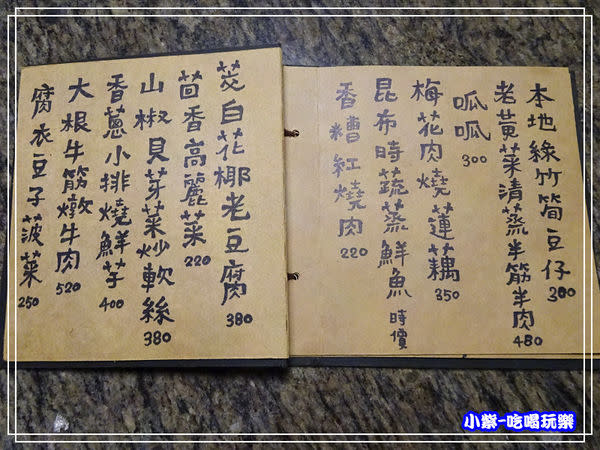 本地綠竹筍豆仔 300
老黃菜清蒸半筋半肉 480
呱呱 300
梅花肉燒蓮藕 350
昆布時蔬蒸鮮魚 時價
香糟紅燒肉 220
茭白花椰老豆腐 380
茴香高麗菜 220
山椒貝芽菜炒軟絲 380
香蔥小排燒鮮芋 400
大根牛筋燉牛肉 520
腐衣豆子菠菜 250
小紫-吃喝玩樂